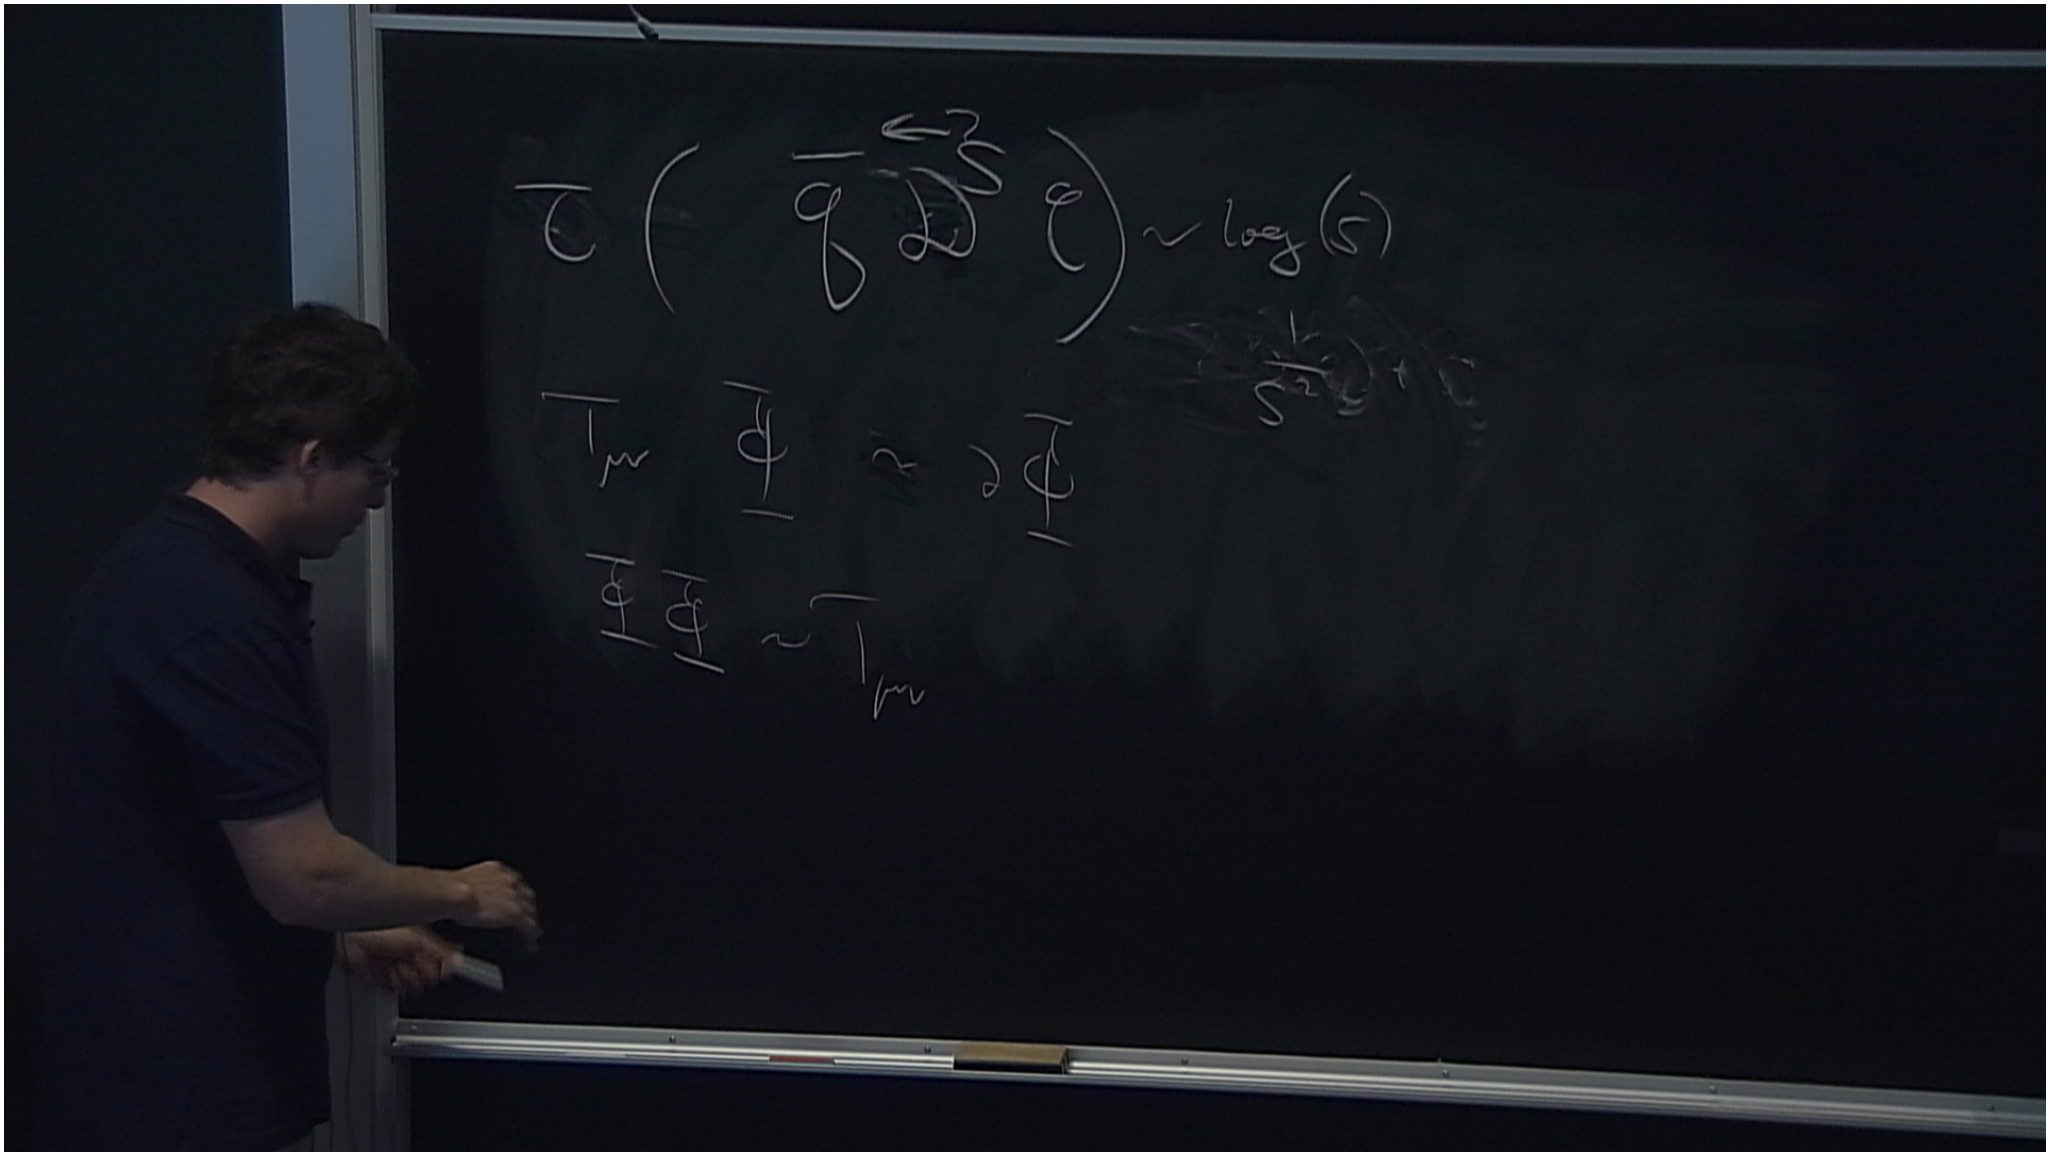 τ̄ ( q̄ D⃡^S q ) ~ log(S)
1/S²
T_μν Φ ≈ ∂Φ
Φ Φ ~ T_μν